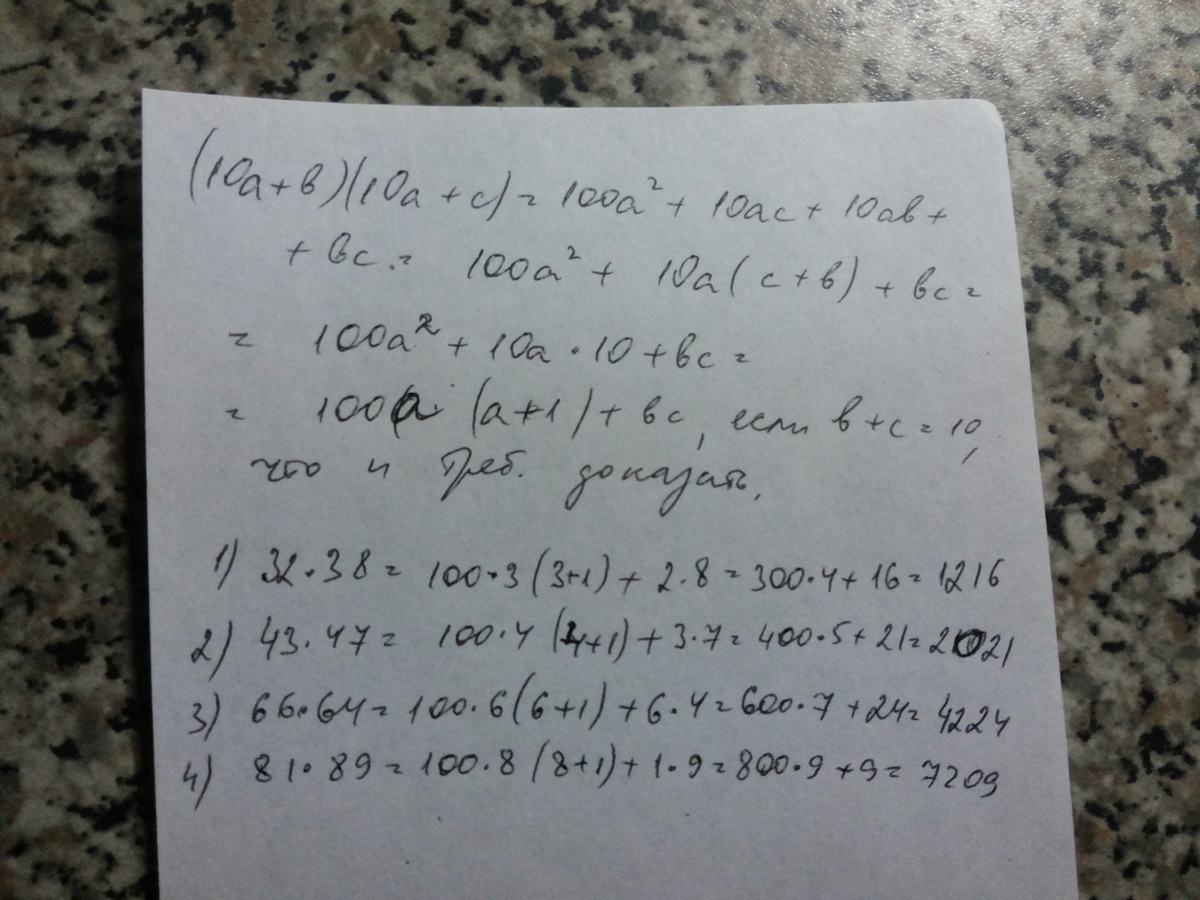 (10а+в)(10а+с) = 100а² + 10ас + 10ав +
+ вс = 100а² + 10а(с+в) + вс =
= 100а² + 10а·10 + вс =
= 100а·(а+1) + вс, если в+с=10,
что и треб. доказать.
1) 32·38 = 100·3(3+1) + 2·8 = 300·4 + 16 = 1216
2) 43·47 = 100·4(4+1) + 3·7 = 400·5 + 21 = 2021
3) 66·64 = 100·6(6+1) + 6·4 = 600·7 + 24 = 4224
4) 81·89 = 100·8(8+1) + 1·9 = 800·9 + 9 = 7209